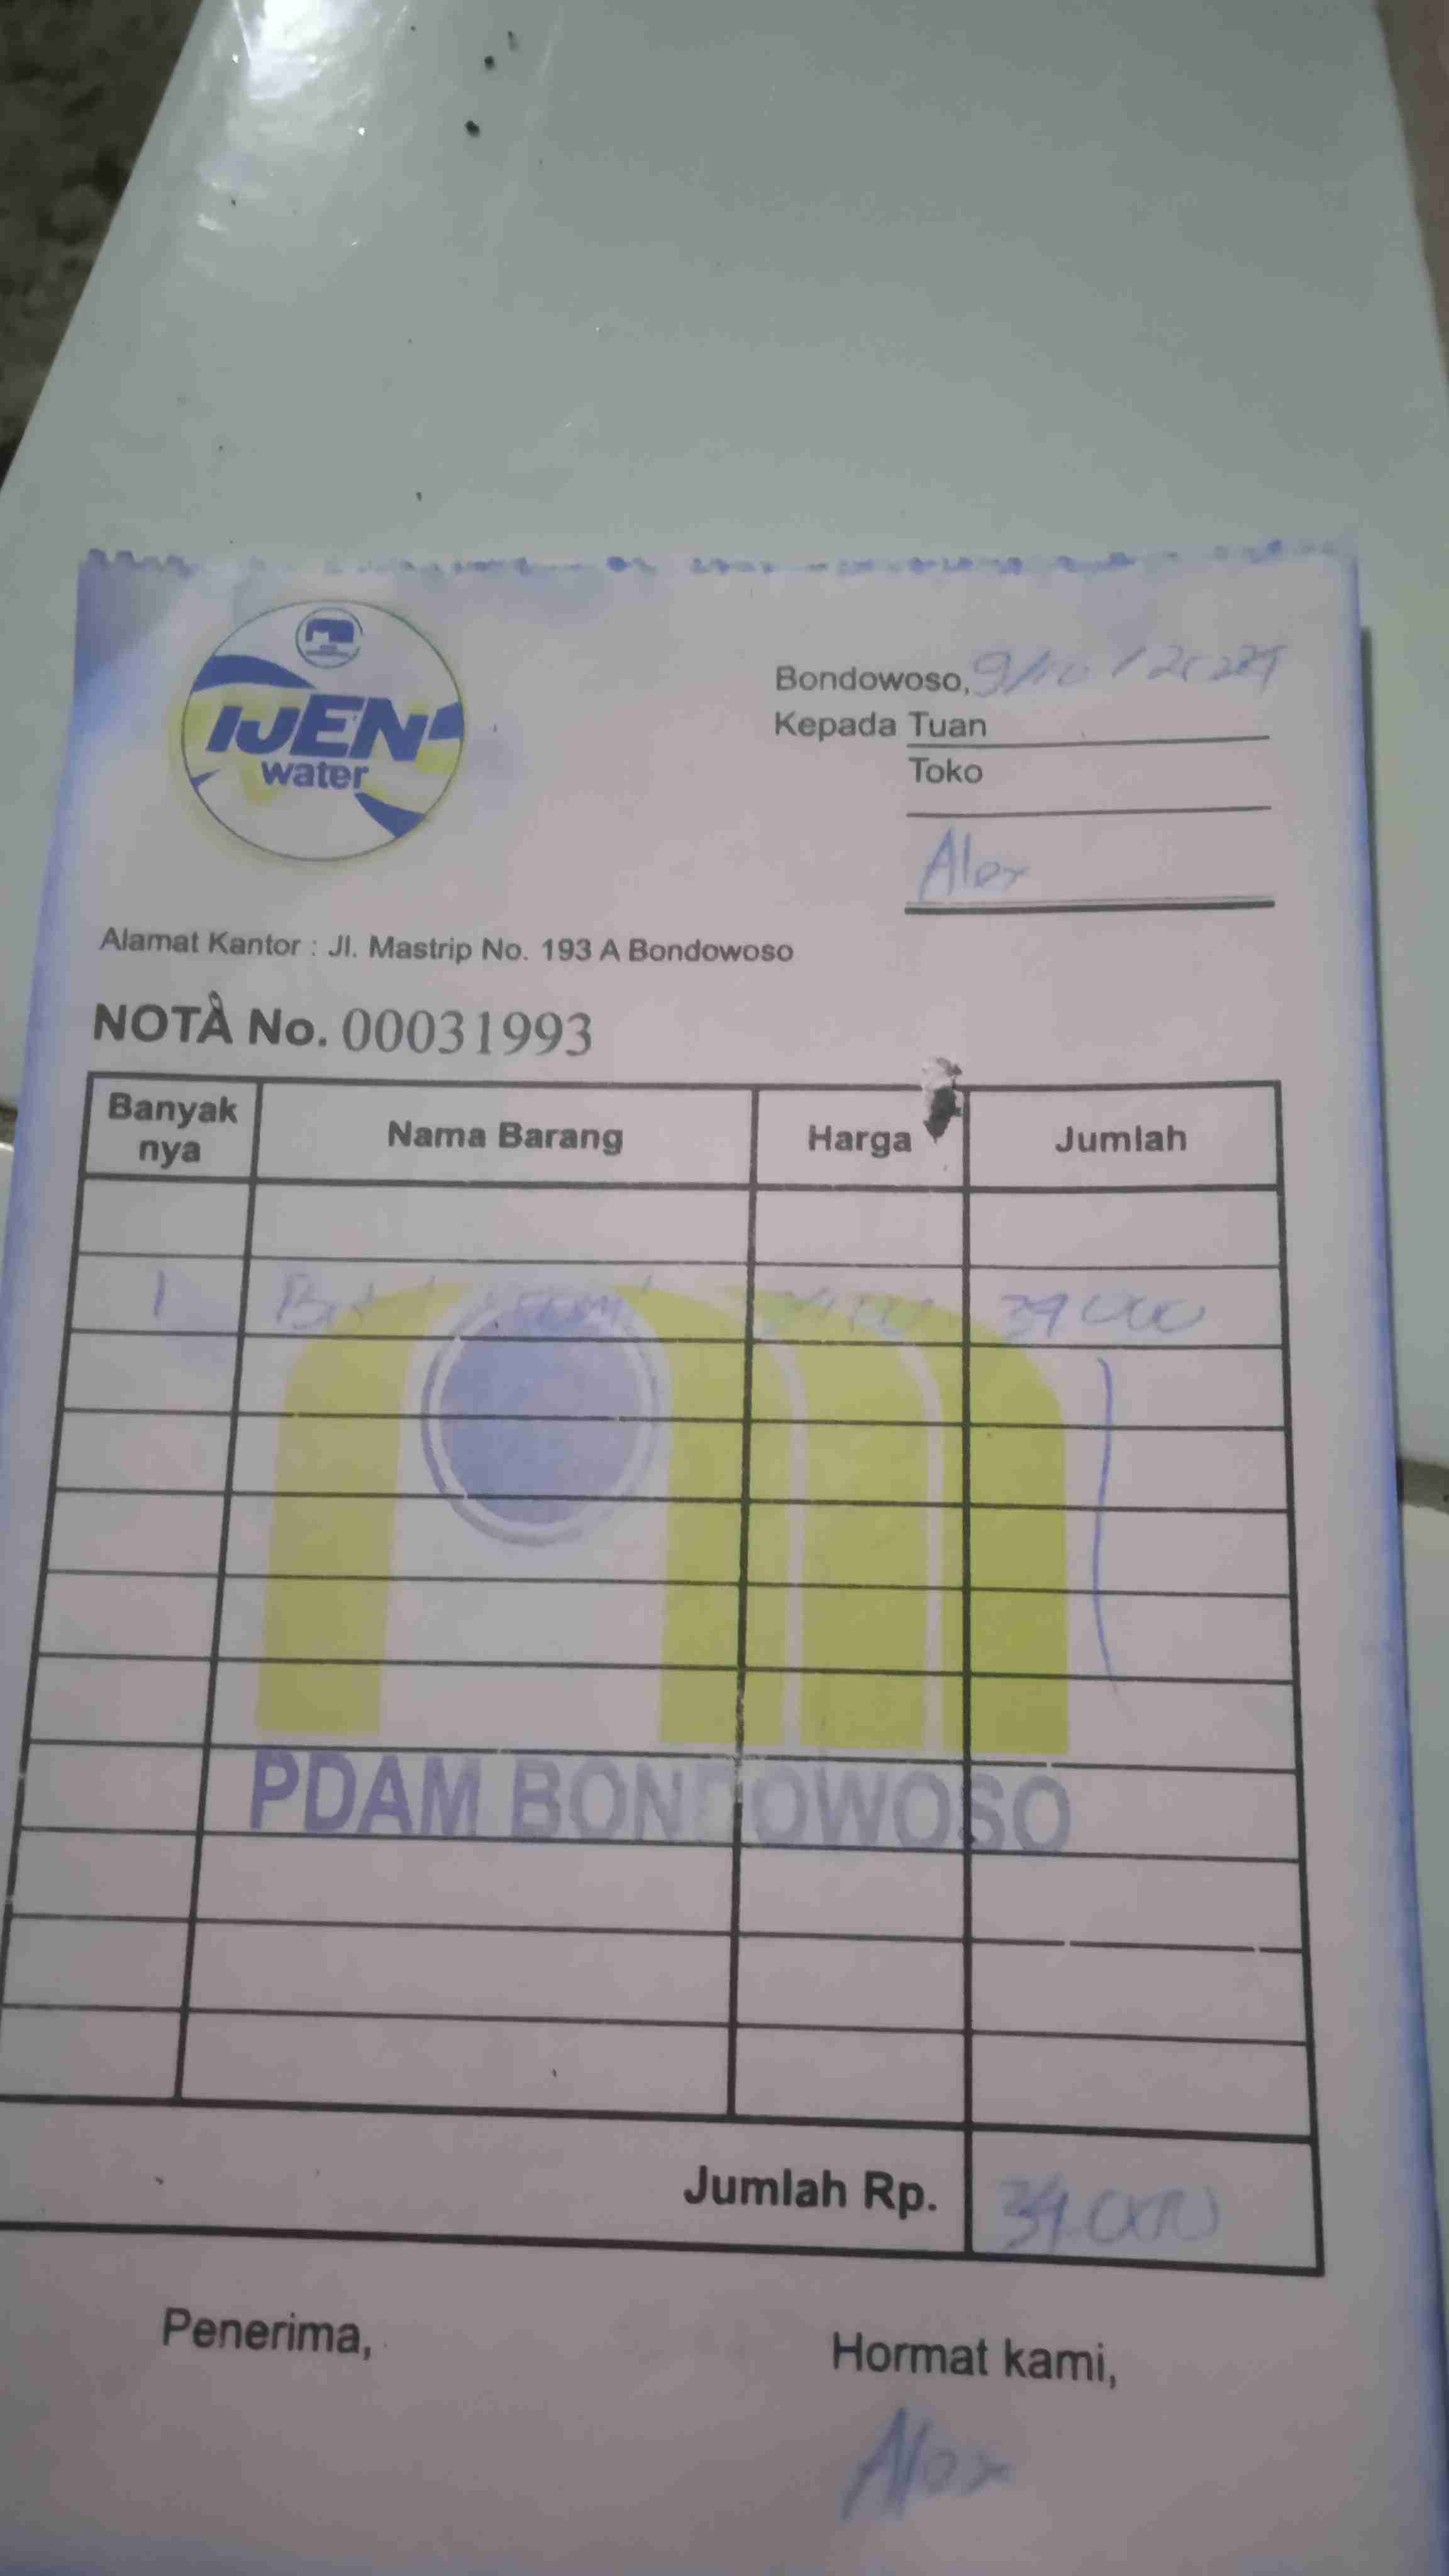 IJEN
water
Bondowoso, 9/10/2024
Kepada Tuan
Toko
Alex
Alamat Kantor : Jl. Mastrip No. 193 A Bondowoso
NOTA No. 00031993
Banyak nya Nama Barang Harga Jumlah
1 39.000
PDAM BONDOWOSO
Jumlah Rp. 39.000
Penerima, Hormat kami,
Alex